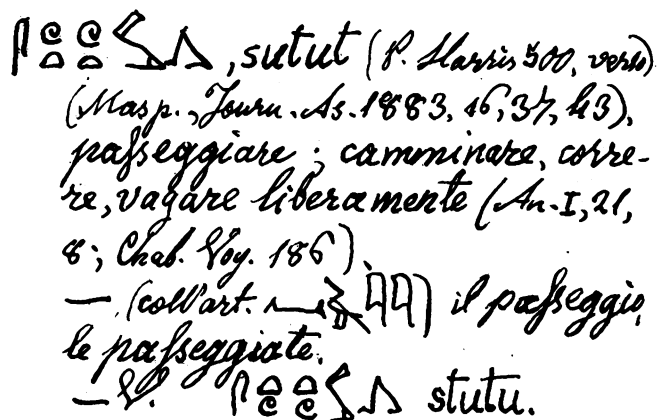 𓋴𓏲𓏏𓏲𓏏𓂻, sutut (P. Harris 500, verso)
(Masp., Journ. As. 1883, 16, 37, 43),
paſseggiare; camminare, corre-
re, vagare liberamente (An. I, 21,
8; Chab. Voy. 186).
— (coll'art. 𓇌) il paſseggio,
le paſseggiate.
— V. 𓋴𓏏𓏲𓏏𓏲𓂻 stutu.